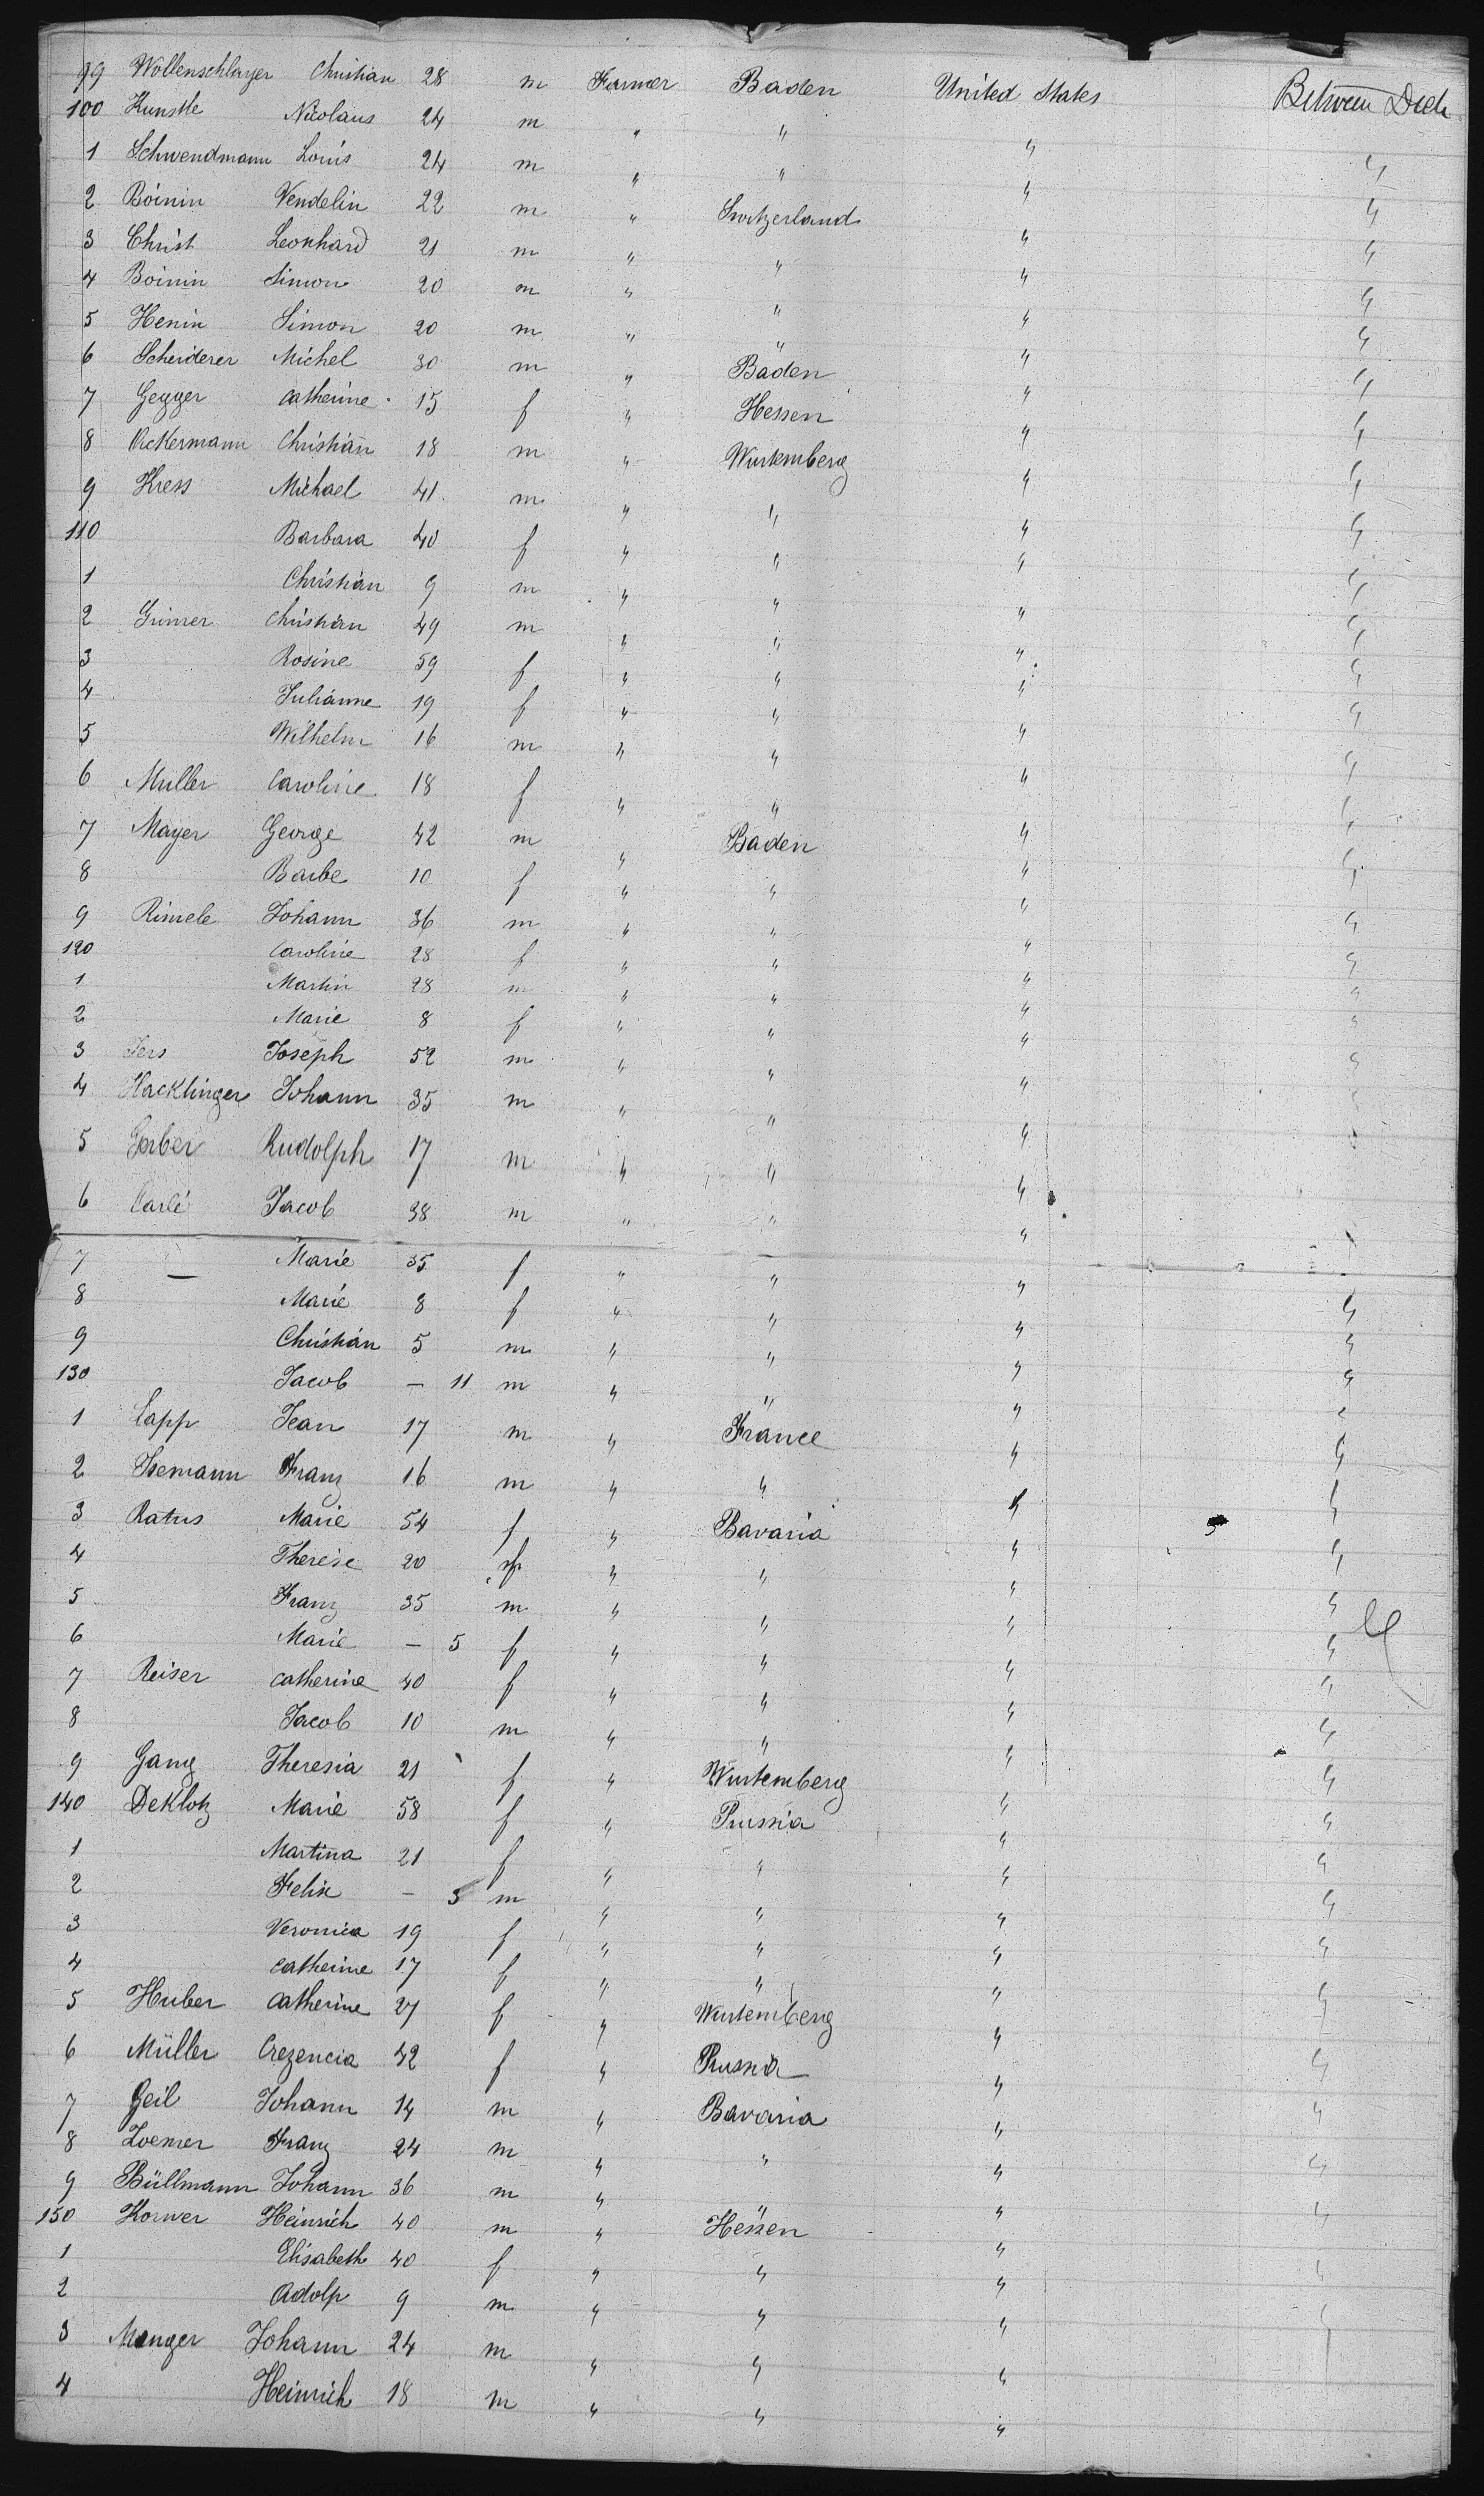 99 Wollenschlager Christian 28 m Farmer Baden United States Between Deck
100 Kunstle Nicolaus 24 m " " " "
1 Schwendmann Louis 24 m " " " "
2 Boinin Vendelin 22 m " Switzerland " "
3 Christ Leonhard 21 m " " " "
4 Boinin Simon 20 m " " " "
5 Henin Simon 20 m " " " "
6 Scheiderer Michel 30 m " Baden " "
7 Gegger Catherine 15 f " Hessen " "
8 Ackermann Christian 18 m " Wurtemberg " "
9 Kress Michael 41 m " " " "
110 Barbara 40 f " " " "
1 Christian 9 m " " " "
2 Christian 49 m " " " "
3 Rosine 59 f " " " "
4 Julianne 19 f " " " "
5 Wilhelm 16 m " " " "
6 Muller Caroline 18 f " " " "
7 Mayer George 42 m " Baden " "
8 Barbe 10 f " " " "
9 Rimele Johann 36 m " " " "
120 Caroline 28 f " " " "
1 Martin 28 m " " " "
2 Marie 8 f " " " "
3 Joseph 52 m " " " "
4 Hacklinger Johann 35 m " " " "
5 Gerber Rudolph 17 m " " " "
6 Carlé Jacob 38 m " " "
7 — Marie 35 f " " " "
8 Marie 8 f " " " "
9 Christian 5 m " " " "
130 Jacob — 11 m " " " "
1 Lapp Jean 17 m " France " "
2 Isemann Franz 16 m " " " "
3 Ratus Marie 54 f " Bavaria " "
4 Therese 20 f " " " "
5 Franz 35 m " " " "
6 Marie — 5 f " " " "
7 Reiser Catherine 40 f " " " "
8 Jacob 10 m " " " "
9 Gang Theresia 21 f " Wurtemberg " "
140 Deklotz Marie 58 f " Prussia " "
1 Martina 21 f " " " "
2 Felix — 3 m " " " "
3 Veronica 19 f " " " "
4 Catherine 17 f " " " "
5 Huber Catherine 27 f " Wurtemberg " "
6 Müller Crezencia 42 f " Prussia " "
7 Geil Johann 14 m " Bavaria " "
8 Zoemer Franz 24 m " " " "
9 Büllmann Johann 36 m " " " "
150 Korner Heinrich 40 m " Hessen "
1 Elisabeth 40 f " " " "
2 Adolp 9 m " " "
3 Manger Johann 24 m " " "
4 Heinrich 18 m " " "